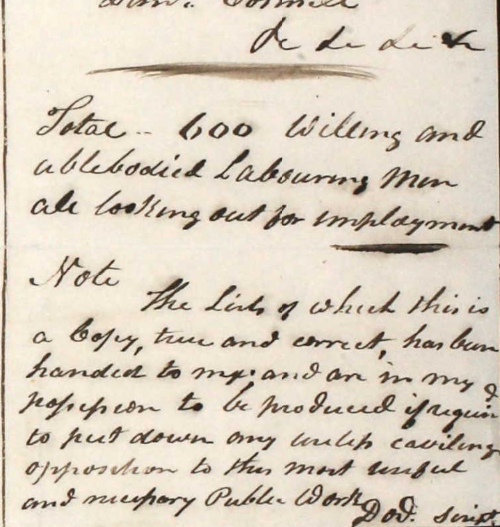 Connell
&c &c &c &c
Total .. 600 Willing and
ablebodied Labouring Men
all looking out for imployment
Note
The Lists of which this is
a Copy, true and correct, has been
handed to me; and are in my
possession to be produced if requird
to put down any useless caviling
opposition to this most useful
and necessary Public Work